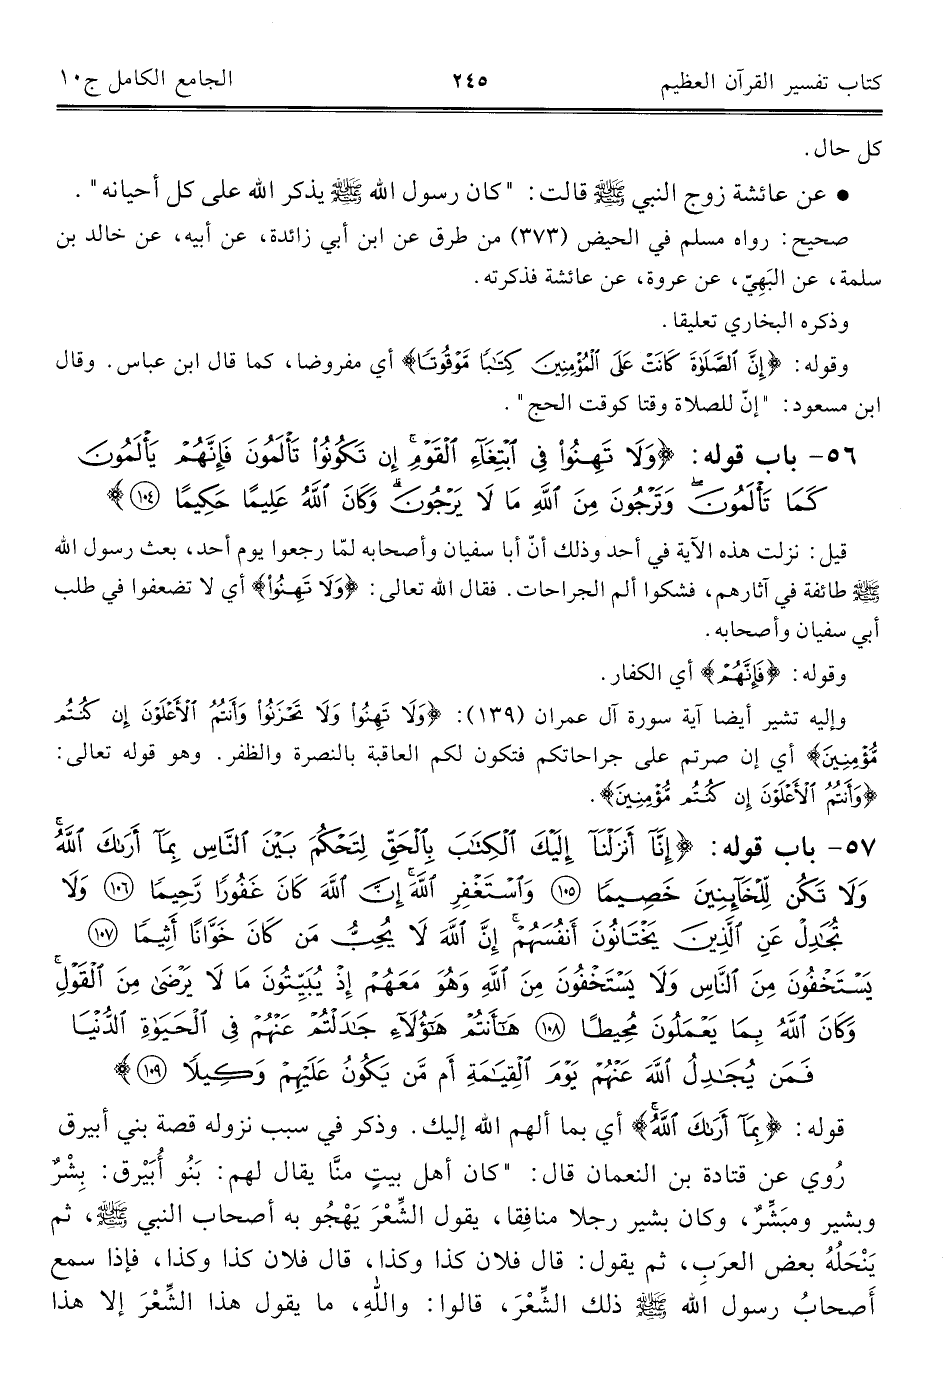 كتاب تفسير القرآن العظيم ٢٤٥ الجامع الكامل ج١٠
كل حال.
● عن عائشة زوج النبي ﷺ قالت: "كان رسول الله ﷺ يذكر الله على كل أحيانه".
صحيح: رواه مسلم في الحيض (٣٧٣) من طرق عن ابن أبي زائدة، عن أبيه، عن خالد بن
سلمة، عن البَهِيّ، عن عروة، عن عائشة فذكرته.
وذكره البخاري تعليقا.
وقوله: ﴿إِنَّ ٱلصَّلَوٰةَ كَانَتْ عَلَى ٱلْمُؤْمِنِينَ كِتَٰبًا مَّوْقُوتًا﴾ أي مفروضا، كما قال ابن عباس. وقال
ابن مسعود: "إنّ للصلاة وقتا كوقت الحج".
٥٦- باب قوله: ﴿وَلَا تَهِنُوا۟ فِى ٱبْتِغَآءِ ٱلْقَوْمِ ۖ إِن تَكُونُوا۟ تَأْلَمُونَ فَإِنَّهُمْ يَأْلَمُونَ
كَمَا تَأْلَمُونَ ۖ وَتَرْجُونَ مِنَ ٱللَّهِ مَا لَا يَرْجُونَ ۗ وَكَانَ ٱللَّهُ عَلِيمًا حَكِيمًا ﴿١٠٤﴾﴾
قيل: نزلت هذه الآية في أحد وذلك أنّ أبا سفيان وأصحابه لمّا رجعوا يوم أحد، بعث رسول الله
ﷺ طائفة في آثارهم، فشكوا ألم الجراحات. فقال الله تعالى: ﴿وَلَا تَهِنُوا۟﴾ أي لا تضعفوا في طلب
أبي سفيان وأصحابه.
وقوله: ﴿فَإِنَّهُمْ﴾ أي الكفار.
وإليه تشير أيضا آية سورة آل عمران (١٣٩): ﴿وَلَا تَهِنُوا۟ وَلَا تَحْزَنُوا۟ وَأَنتُمُ ٱلْأَعْلَوْنَ إِن كُنتُم
مُّؤْمِنِينَ﴾ أي إن صرتم على جراحاتكم فتكون لكم العاقبة بالنصرة والظفر. وهو قوله تعالى:
﴿وَأَنتُمُ ٱلْأَعْلَوْنَ إِن كُنتُم مُّؤْمِنِينَ﴾.
٥٧- باب قوله: ﴿إِنَّآ أَنزَلْنَآ إِلَيْكَ ٱلْكِتَٰبَ بِٱلْحَقِّ لِتَحْكُمَ بَيْنَ ٱلنَّاسِ بِمَآ أَرَىٰكَ ٱللَّهُ ۚ
وَلَا تَكُن لِّلْخَآئِنِينَ خَصِيمًا ﴿١٠٥﴾ وَٱسْتَغْفِرِ ٱللَّهَ ۖ إِنَّ ٱللَّهَ كَانَ غَفُورًا رَّحِيمًا ﴿١٠٦﴾ وَلَا
تُجَٰدِلْ عَنِ ٱلَّذِينَ يَخْتَانُونَ أَنفُسَهُمْ ۚ إِنَّ ٱللَّهَ لَا يُحِبُّ مَن كَانَ خَوَّانًا أَثِيمًا ﴿١٠٧﴾
يَسْتَخْفُونَ مِنَ ٱلنَّاسِ وَلَا يَسْتَخْفُونَ مِنَ ٱللَّهِ وَهُوَ مَعَهُمْ إِذْ يُبَيِّتُونَ مَا لَا يَرْضَىٰ مِنَ ٱلْقَوْلِ ۚ
وَكَانَ ٱللَّهُ بِمَا يَعْمَلُونَ مُحِيطًا ﴿١٠٨﴾ هَٰٓأَنتُمْ هَٰٓؤُلَآءِ جَٰدَلْتُمْ عَنْهُمْ فِى ٱلْحَيَوٰةِ ٱلدُّنْيَا
فَمَن يُجَٰدِلُ ٱللَّهَ عَنْهُمْ يَوْمَ ٱلْقِيَٰمَةِ أَم مَّن يَكُونُ عَلَيْهِمْ وَكِيلًا ﴿١٠٩﴾﴾
قوله: ﴿بِمَآ أَرَىٰكَ ٱللَّهُ ۚ﴾ أي بما ألهم الله إليك. وذكر في سبب نزوله قصة بني أبيرق
رُوي عن قتادة بن النعمان قال: "كان أهل بيتٍ منَّا يقال لهم: بَنُو أُبَيْرِق: بِشْرٌ
وبشير ومبَشِّرٌ، وكان بشير رجلا منافِقا، يقول الشِّعْرَ يَهْجُو به أصحاب النبي ﷺ، ثم
يَنْحَلُهُ بعض العرَبِ، ثم يقول: قال فلان كذا وكذا، قال فلان كذا وكذا، فإذا سمع
أصحابُ رسول الله ﷺ ذلك الشِّعْرَ، قالوا: واللهِ، ما يقول هذا الشِّعْرَ إلا هذا